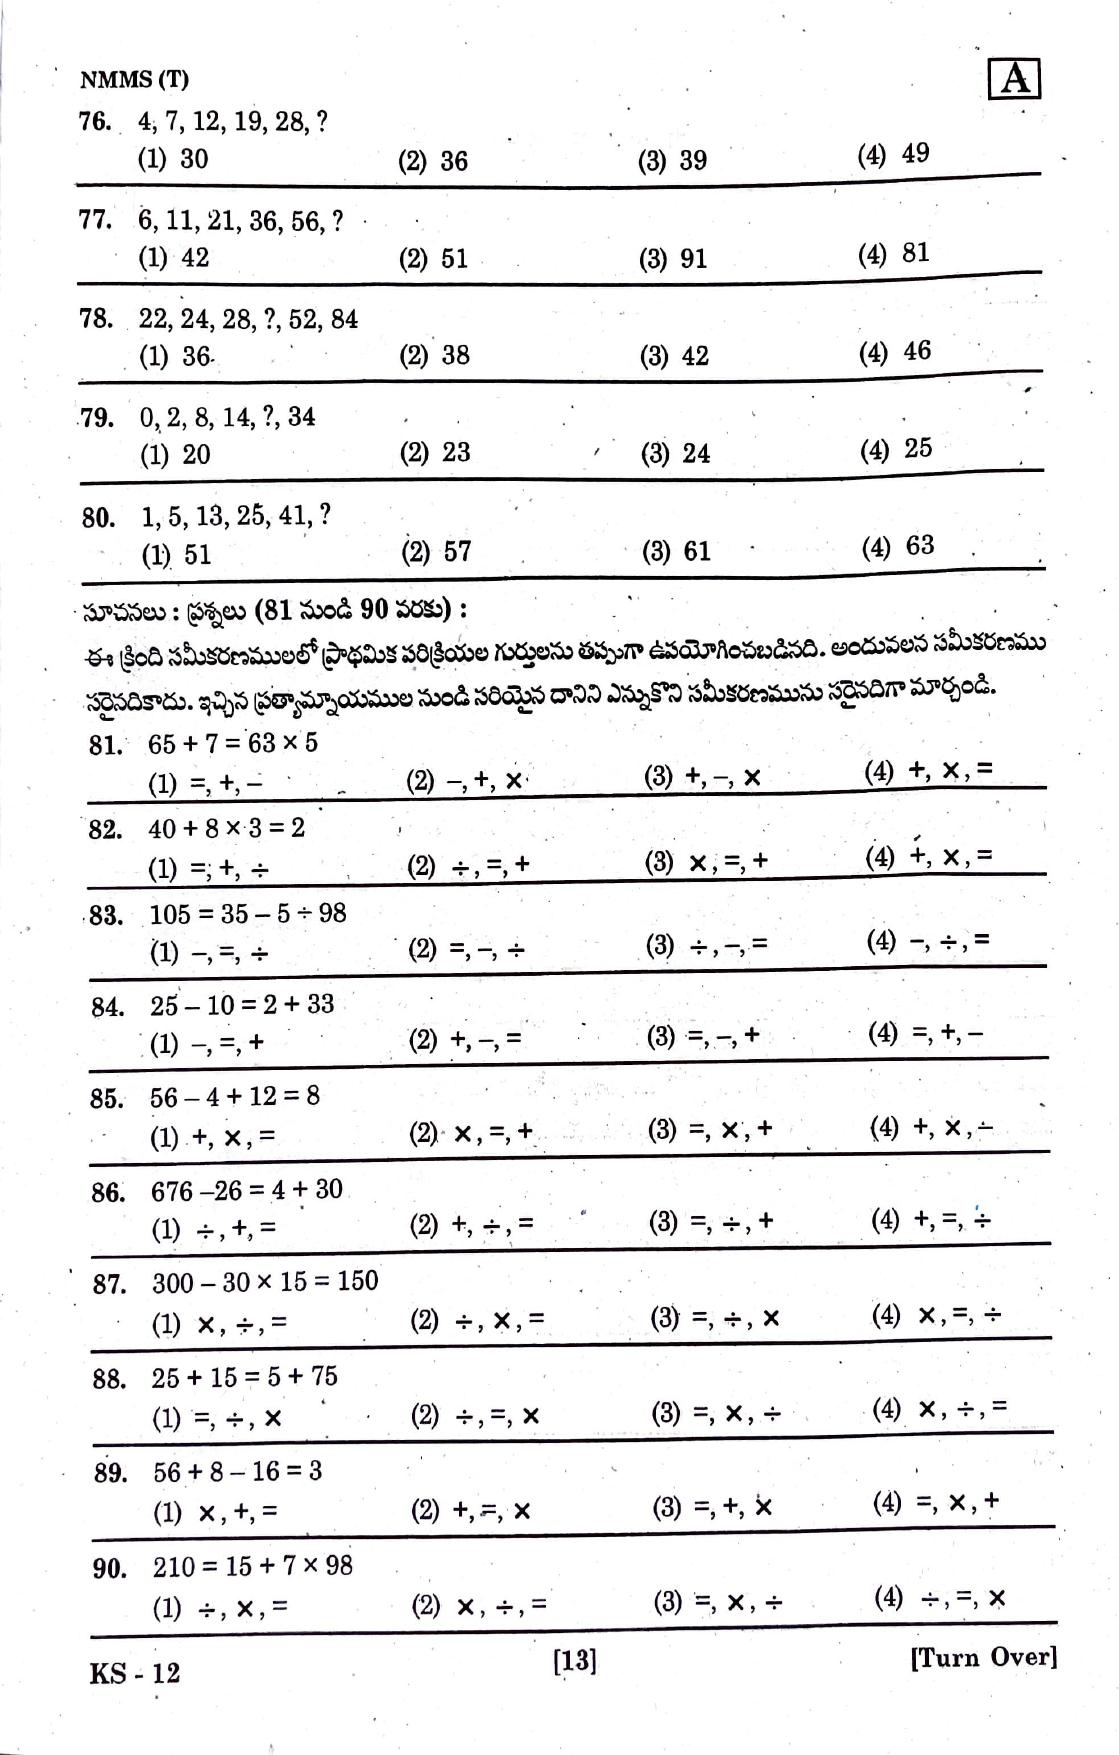 NMMS (T)
A
76. 4, 7, 12, 19, 28, ?
(1) 30 (2) 36 (3) 39 (4) 49
77. 6, 11, 21, 36, 56, ?
(1) 42 (2) 51 (3) 91 (4) 81
78. 22, 24, 28, ?, 52, 84
(1) 36 (2) 38 (3) 42 (4) 46
79. 0, 2, 8, 14, ?, 34
(1) 20 (2) 23 (3) 24 (4) 25
80. 1, 5, 13, 25, 41, ?
(1) 51 (2) 57 (3) 61 (4) 63
సూచనలు : ప్రశ్నలు (81 నుండి 90 వరకు) :
ఈ క్రింది సమీకరణములలో ప్రాథమిక పరిక్రియల గుర్తులను తప్పుగా ఉపయోగించబడినది. అందువలన సమీకరణము
సరైనదికాదు. ఇచ్చిన ప్రత్యామ్నాయముల నుండి సరియైన దానిని ఎన్నుకొని సమీకరణమును సరైనదిగా మార్చండి.
81. 65 + 7 = 63 × 5
(1) =, +, – (2) –, +, × (3) +, –, × (4) +, ×, =
82. 40 + 8 × 3 = 2
(1) =, +, ÷ (2) ÷, =, + (3) ×, =, + (4) +, ×, =
83. 105 = 35 – 5 ÷ 98
(1) –, =, ÷ (2) =, –, ÷ (3) ÷, –, = (4) –, ÷, =
84. 25 – 10 = 2 + 33
(1) –, =, + (2) +, –, = (3) =, –, + (4) =, +, –
85. 56 – 4 + 12 = 8
(1) +, ×, = (2) ×, =, + (3) =, ×, + (4) +, ×, ÷
86. 676 –26 = 4 + 30
(1) ÷, +, = (2) +, ÷, = (3) =, ÷, + (4) +, =, ÷
87. 300 – 30 × 15 = 150
(1) ×, ÷, = (2) ÷, ×, = (3) =, ÷, × (4) ×, =, ÷
88. 25 + 15 = 5 + 75
(1) =, ÷, × (2) ÷, =, × (3) =, ×, ÷ (4) ×, ÷, =
89. 56 + 8 – 16 = 3
(1) ×, +, = (2) +, =, × (3) =, +, × (4) =, ×, +
90. 210 = 15 + 7 × 98
(1) ÷, ×, = (2) ×, ÷, = (3) =, ×, ÷ (4) ÷, =, ×
KS - 12 [13] [Turn Over]